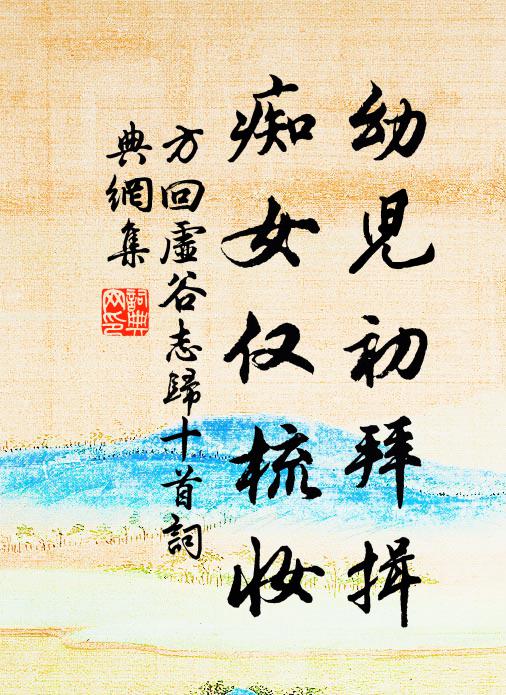 幼児初拜揖
痴女仅梳妝
方回虛谷志歸十首詞
典網集
詞典网印